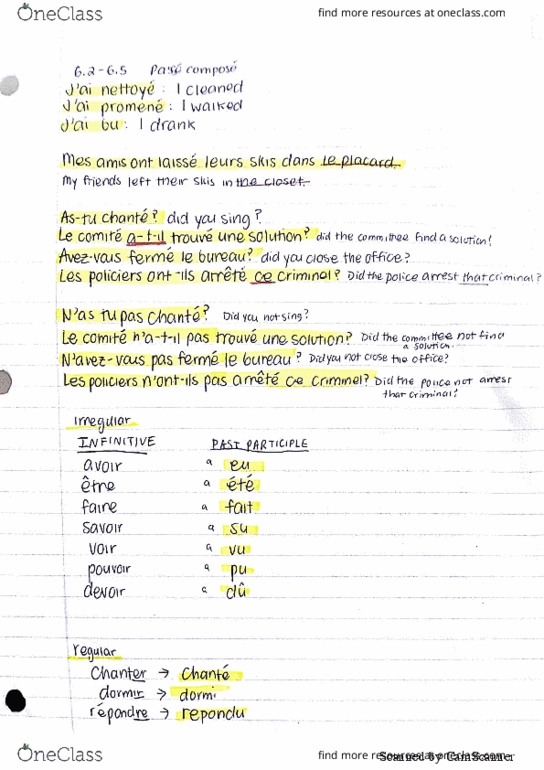 OneClass
find more resources at oneclass.com
6.2-6.5 Passé composé
J'ai nettoyé : I cleaned
J'ai promené : I walked
J'ai bu : I drank
Mes amis ont laissé leurs skis dans le placard.
My friends left their skis in the closet.
As-tu chanté? did you sing?
Le comité a-t-il trouvé une solution? did the committee find a solution?
Avez-vous fermé le bureau? did you close the office?
Les policiers ont-ils arrêté ce criminel? Did the police arrest that criminal?
N'as tu pas chanté? Did you not sing?
Le comité n'a-t-il pas trouvé une solution? Did the committee not find
a solution
N'avez-vous pas fermé le bureau? Did you not close the office?
Les policiers n'ont-ils pas arrêté ce criminel? Did the police not arrest
that criminal?
Irregular
INFINITIVE PAST PARTICIPLE
avoir a eu
être a été
faire a fait
savoir a su
voir a vu
pouvoir a pu
devoir a dû
regular
Chanter → Chanté
dormir → dormi
répondre → repondu
OneClass
find more resources at oneclass.com
Scanned by CamScanner